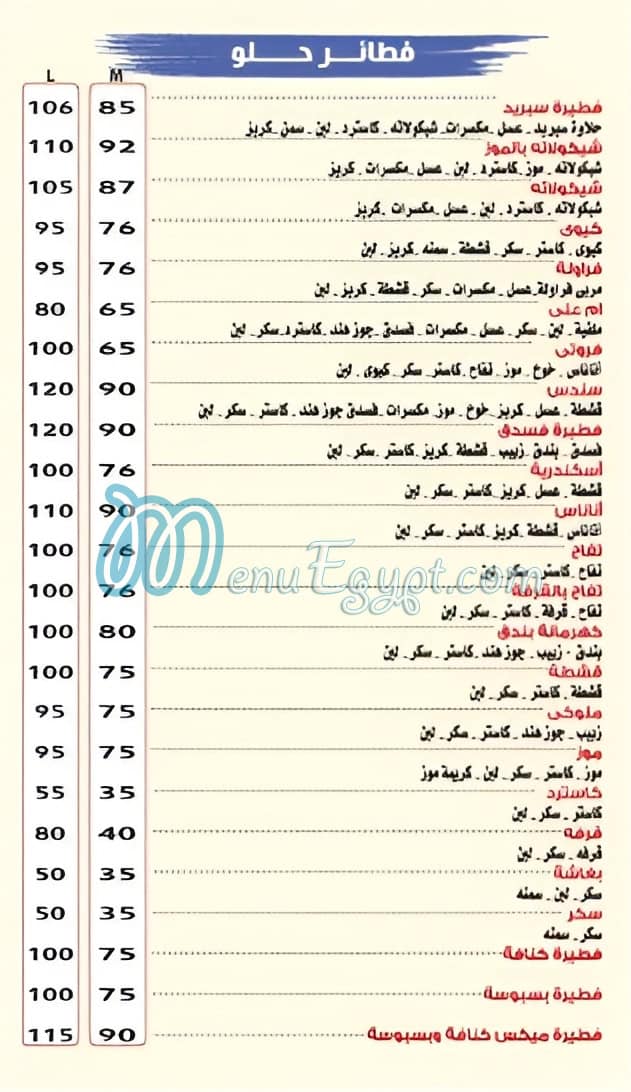 فطائر حلو
L M
فطيرة سبريد 85 106
حلاوة سبريد - عسل - مكسرات - شيكولاته - كاسترد - لبن - سمن - كريز
شيكولاته بالموز 92 110
شيكولاته - موز - كاسترد - لبن - عسل - مكسرات - كريز
شيكولاته 87 105
شيكولاته - كاسترد - لبن - عسل - مكسرات - كريز
كيوى 76 95
كيوى - كاستر - سكر - قشطة - سمنه - كريز - لبن
فراولة 76 95
مربى فراولة - عسل - مكسرات - سكر - قشطة - كريز - لبن
ام على 65 80
ملفية - لبن - سكر - عسل - مكسرات - فسدق - جوز هند - كاسترد - سكر - لبن
فروتى 65 100
اناناس - خوخ - موز - تفاح - كاستر - سكر - كيوى - لبن
سندس 90 120
قشطة - عسل - كريز - خوخ - موز - مكسرات - فسدق - جوز هند - كاستر - سكر - لبن
فطيرة فسدق 90 120
فسدق - بندق - زبيب - قشطة - كريز - كاستر - سكر - لبن
أسكندرية 76 100
قشطة - عسل - كريز - كاستر - سكر - لبن
أناناس 90 110
اناناس - قشطة - كريز - كاستر - سكر - لبن
تفاح 76 100
تفاح - كاستر - سكر - لبن
تفاح بالقرفة 76 100
تفاح - قرفة - كاستر - سكر - لبن
كهرمانة بندق 80 100
بندق - زبيب - جوز هند - كاستر - سكر - لبن
قشطة 75 100
قشطة - كاستر - سكر - لبن
ملوكى 75 95
زبيب - جوز هند - كاستر - سكر - لبن
موز 75 95
موز - كاستر - سكر - لبن - كريمة موز
كاسترد 35 55
كاستر - سكر - لبن
قرفه 40 80
قرفه - سكر - لبن
بغاشة 35 50
سكر - لبن - سمنه
سكر 35 50
سكر - سمنه
فطيرة كنافة 75 100
فطيرة بسبوسة 75 100
فطيرة ميكس كنافة وبسبوسة 90 115
MenuEgypt.com